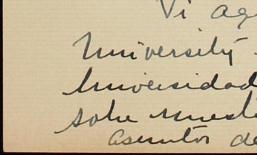 Vi ag
University
Universidad
sobre
asuntos de